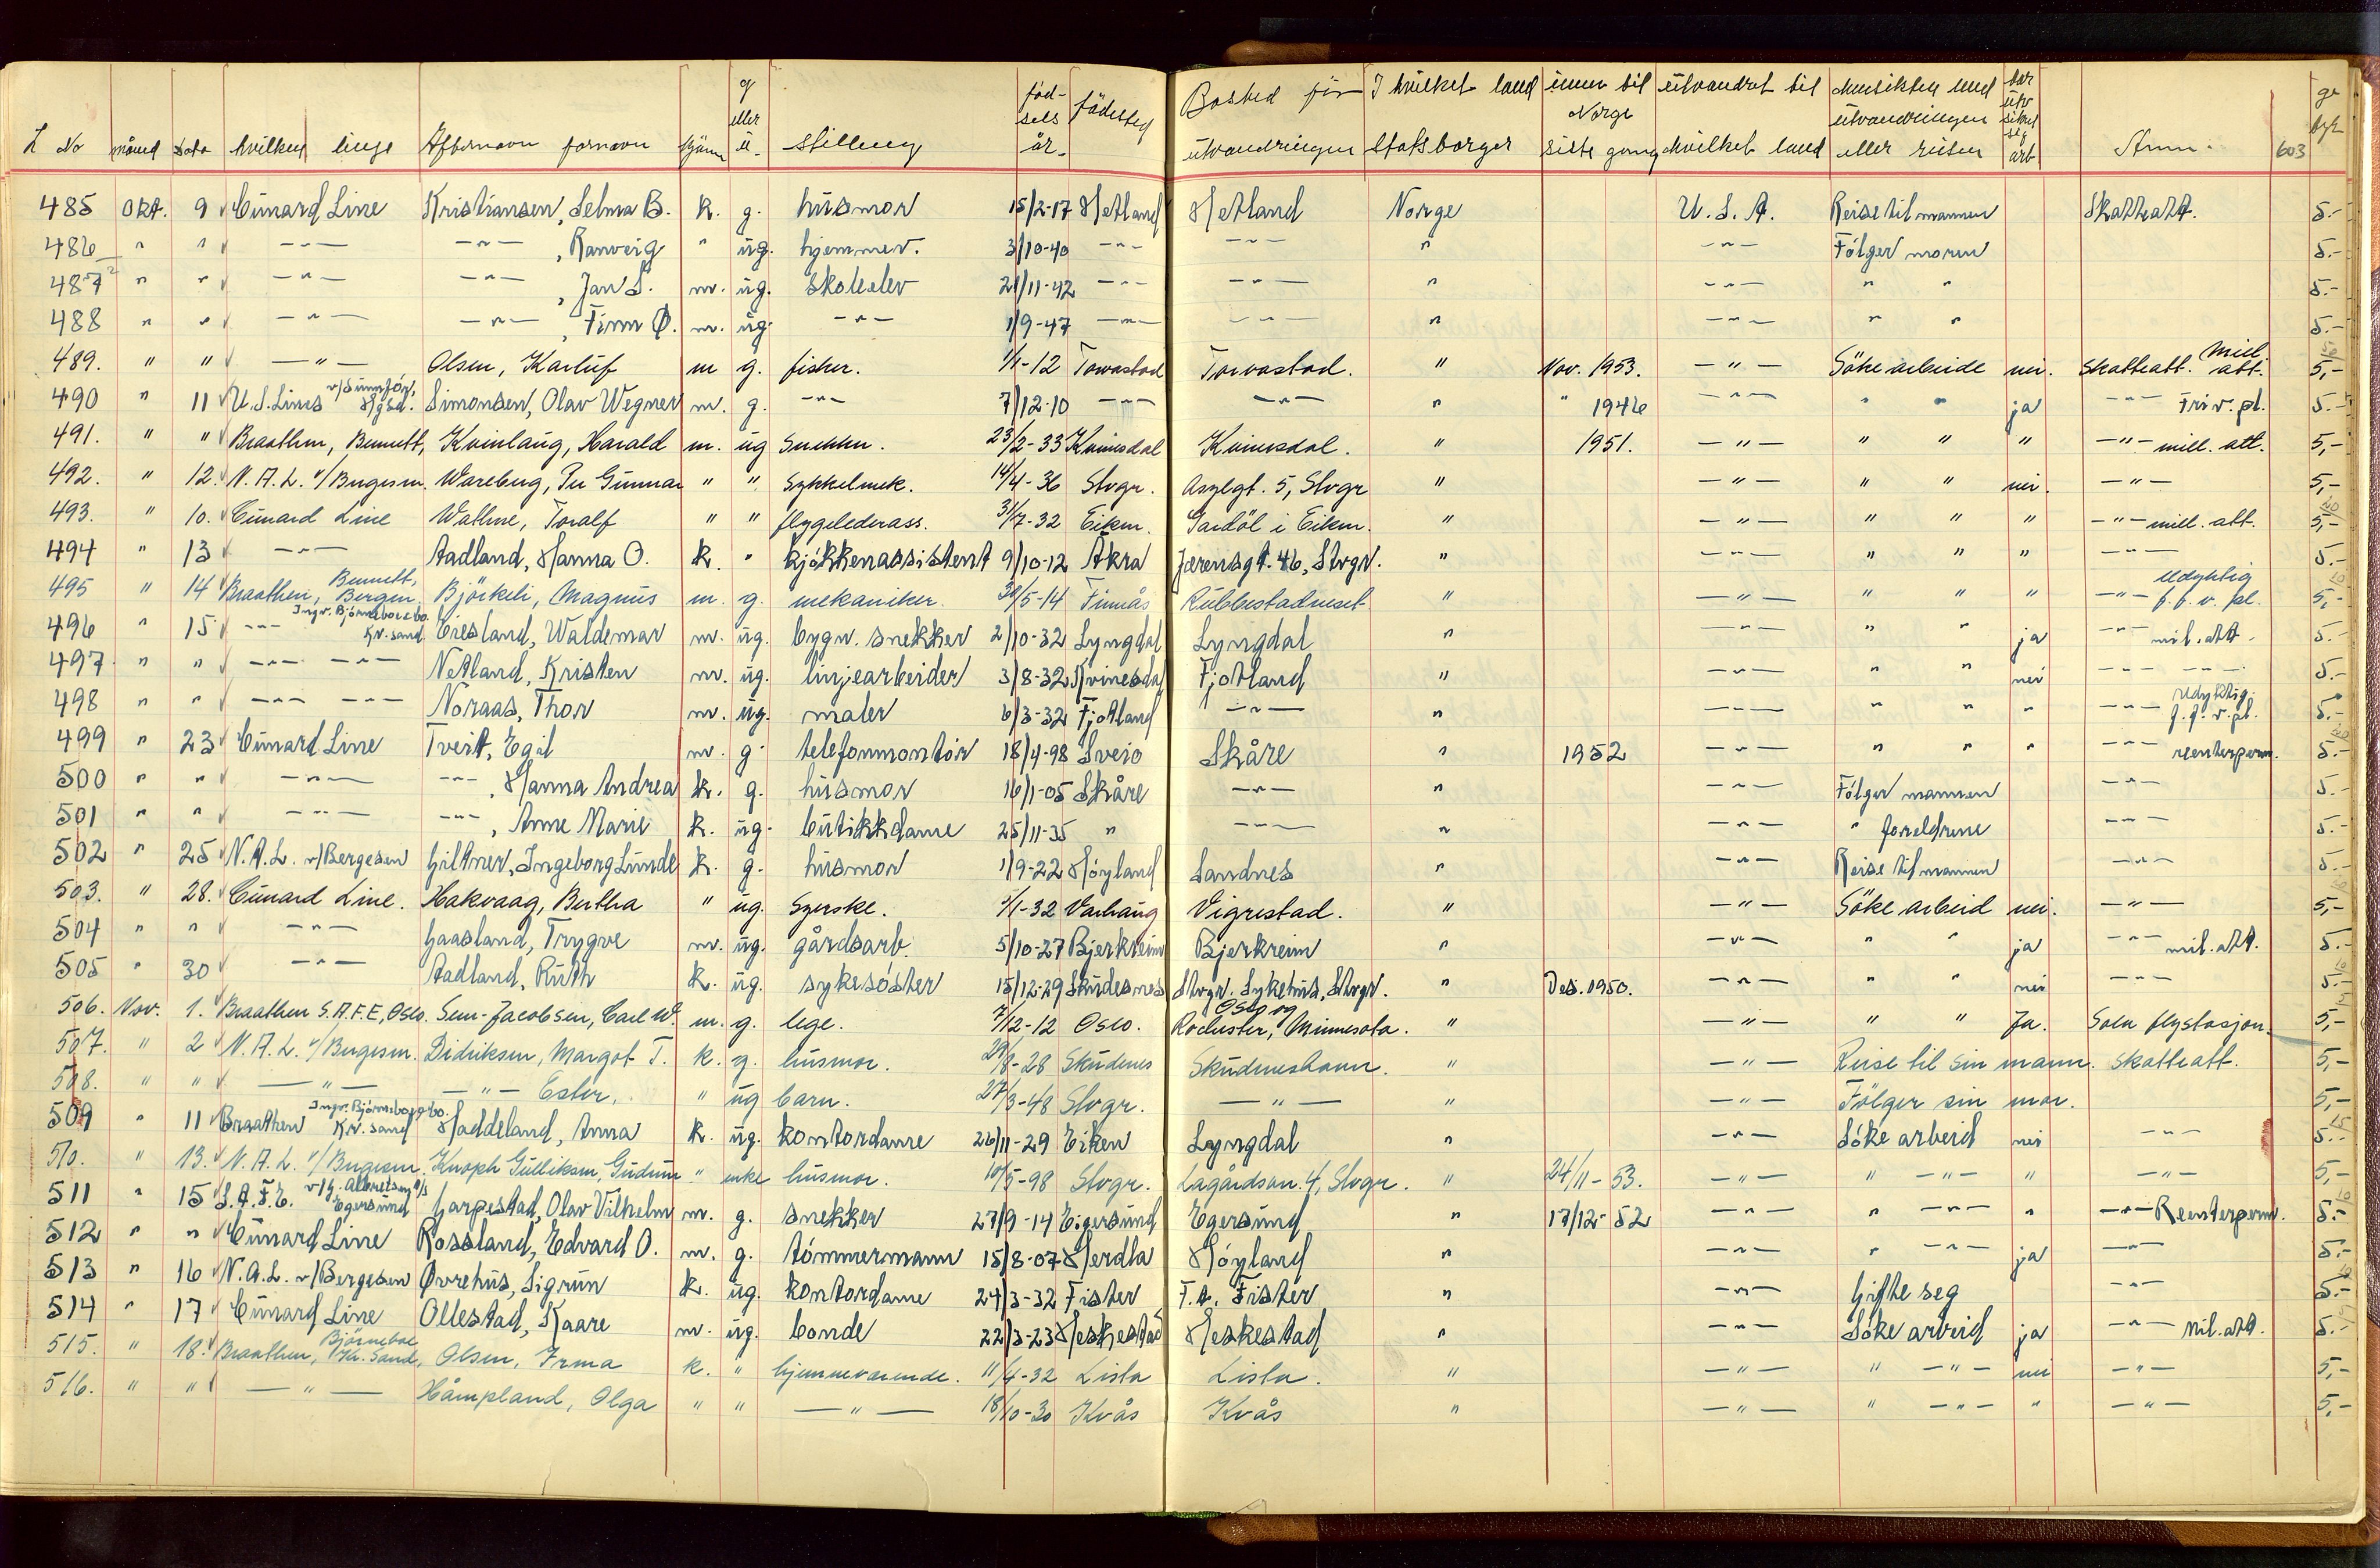 L No måned Dato hvilken linje Efternavn fornavn kjønn g eller u. stilling fød-sels år. fødested Bosted før utvandringen I hvilket land statsborger innen til Norge siste gang utvandret til hvilket land hensikten med utvandringen eller reisen har utv. sikret seg arb Anm. 603 gebyr
485 Okt. 9 Cunard Line Kristiansen, Selma B. k. g. husmor 15/2-17 Hetland Hetland Norge U.S.A. Reise til mannen Skatteatt. 5.-
486 " " -"- -"- , Ranveig " ug. hjemmev. 3/10-40 -"- -"- " -"- Følger moren 5.-
487 " " -"- -"- , Jan S. m. ug. Skoleelev 21/11-42 -"- -"- " -"- " " 5.-
488 " " -"- -"- , Finn Ø. m. ug. -"- 1/9-47 -"- -"- " -"- " " 5.-
489. " " -"- Olsen, Karluf m g. fisker. 1/1-12 Torvastad Torvastad. " Nov. 1953. -"- Söke arbeide nei. Skatteatt. Mill. att. 5,-
490 " 11 U.S. Lines v/Sunnfør, Hgsd. Simonsen, Olav Wegner m. g. -"- 7/12-10 -"- -"- " " 1946 -"- " " ja -"- Friv. pl. 5.-
491. " " Braathen, Bennett, Kvinlaug, Harald m. ug Snekker. 23/2-33 Kvinesdal Kvinesdal. " 1951. -"- " " " -"- mill. att. 5,-
492. " 12. N.A.L. v/Bergesen. Wareberg, Per Gunnar " " Sykkelmek. 14/4-36 Stvgr. Asylgt. 5, Stvgr " -"- " " nei. -"- 5,-
493. " 10. Cunard Line Wathne, Toralf " " flygelederass. 31/7-32 Eikm. Gardöl i Eikm. " -"- " " " -"- mill. att. 5,-
494 " 13 -"- Aadland, Hanna O. k. " kjøkkenassistent 9/10-12 Åkra Jærensgt. 46, Stvgr. " -"- " " " -"- 5.-
495 " 14 Braathen, Bennett, Bergen. Björkeli, Magnus m. g. mekaniker. 30/5-14 Finnås Rubbestadneset " -"- " " " -"- Udyktig f.f.v. pl. 5,-
496 " 15 -"- Ingv. Bjørnebo &co. Kr. sand Eiesland, Waldemar m. ug. bygn. snekker 2/10-32 Lyngdal Lyngdal " -"- " " ja -"- mil. att. 5.-
497 " " -"- -"- Netland, Kristen m. ug. linjearbeider 3/8-32 Kvinesdal Fjotland " -"- " " nei -"- -"- 5.-
498 " " -"- -"- Noraas, Thor m. ug. maler 6/3-32 Fjotland -"- " -"- " " " -"- Udyktig f.f.v.pl. 5.-
499 " 23 Cunard Line Tveit, Egil m. g. telefonmontør 18/4-98 Sveio Skåre " 1952 -"- " " " -"- reenterperm. 5.-
500 " " -"- -"- , Hanna Andrea k. g. husmor 16/1-05 Skåre -"- " -"- Følger mannen -"- 5.-
501 " " -"- -"- , Anne Marie k. ug. butikkdame 25/11-35 " -"- " -"- " foreldrene -"- 5.-
502 " 25 N.A.L. v/Bergesen Giltner, Ingeborg Lunde k. g. husmor 1/9-22 Høyland Sandnes " -"- Reise til mannen -"- 5.-
503. " 28. Cunard Line. Hakvaag, Bertha " ug. Syerske. 5/1-32 Varhaug Vigrestad. " -"- Söke arbeid nei. -"- 5,-
504 " " -"- Gaasland, Trygve m. ug. gårdsarb. 5/10-27 Bjerkreim Bjerkreim " -"- " " ja -"- mil. att. 5.-
505 " 30 -"- Aadland, Ruth k. ug. sykesøster 15/12-29 Skudesnes Stvgr. Sykehus, Stvgr. " Des. 1950. -"- " " nei -"- 5.-
506. Nov. 1. Braathen S.A.F.E, Oslo. Sem-Jacobsen, Carl W. m. g. lege. 7/12-12 Oslo. Oslo og Rochester, Minnesota. " -"- " " Ja. Sola flystasjon. 5,-
507. " 2 N.A.L. v/Bergesen. Didriksen, Margot T. k. g. husmor. 29/8-28 Skudenes Skudeneshavn. " -"- Reise til sin mann. Skatteatt. 5,-
508. " " -"- -"- Ester, " ug barn. 27/3-48 Stvgr. -"- " -"- Følger sin mor. 5,-
509 " 11 Braathen Ingv. Bjørnebo &co. Kr. sand Haddeland, Anna k. ug. kontordame 26/11-29 Eiken Lyngdal " -"- Søke arbeid nei -"- 5.-
510. " 13. N.A.L. v/Bergesen. Knoph Gulliksen, Gudrun " enke husmor. 10/5-98 Stvgr. Lagårdsvn. 4, Stvgr. " 24/11-53. -"- " -"- " -"- 5,-
511 " 15 S.A.F.E. v/G. Albretsen a/s Egersund Garpestad, Olav Vilhelm m. g. snekker 27/9-14 Eigersund Egersund " 17/12-52 -"- " -"- " -"- Reenterperm. 5.-
512 " " Cunard Line Rossland, Edvard O. m. g. tømmermann 15/8-07 Herdla Høyland " -"- " -"- ja -"- 5.-
513 " 16 N.A.L. v/Bergesen Øvrehus, Sigrun k. ug. kontordame 24/3-32 Fister F.a. Fister " -"- Gifte seg -"- 5.-
514 " 17 Cunard Line Ollestad, Kaare m. ug. bonde 22/3-23 Heskestad Heskestad " -"- Søke arbeid ja -"- Mil. att. 5.-
515. " 18. Braathen, Björnebo Kr. Sand, Olsen, Irma k. " hjemmeværende. 11/4-32 Lista Lista. " -"- " -"- nei -"- 5,-
516. " " -"- Håmpland, Olga " " -"- 18/10-30 Kvås Kvås " -"- " -"- " -"- 5,-